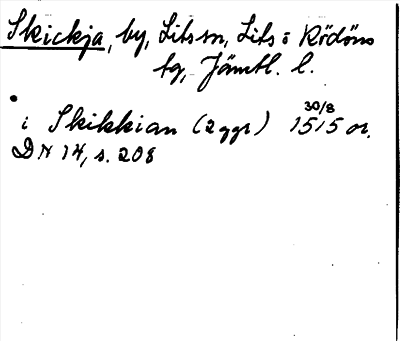 Skickja, by, Lits sn, Lits o Rödöns
tg, Jämtl. l.
30/8
i Skikkian (2 ggr) 1515 or.
DN 14, s. 208